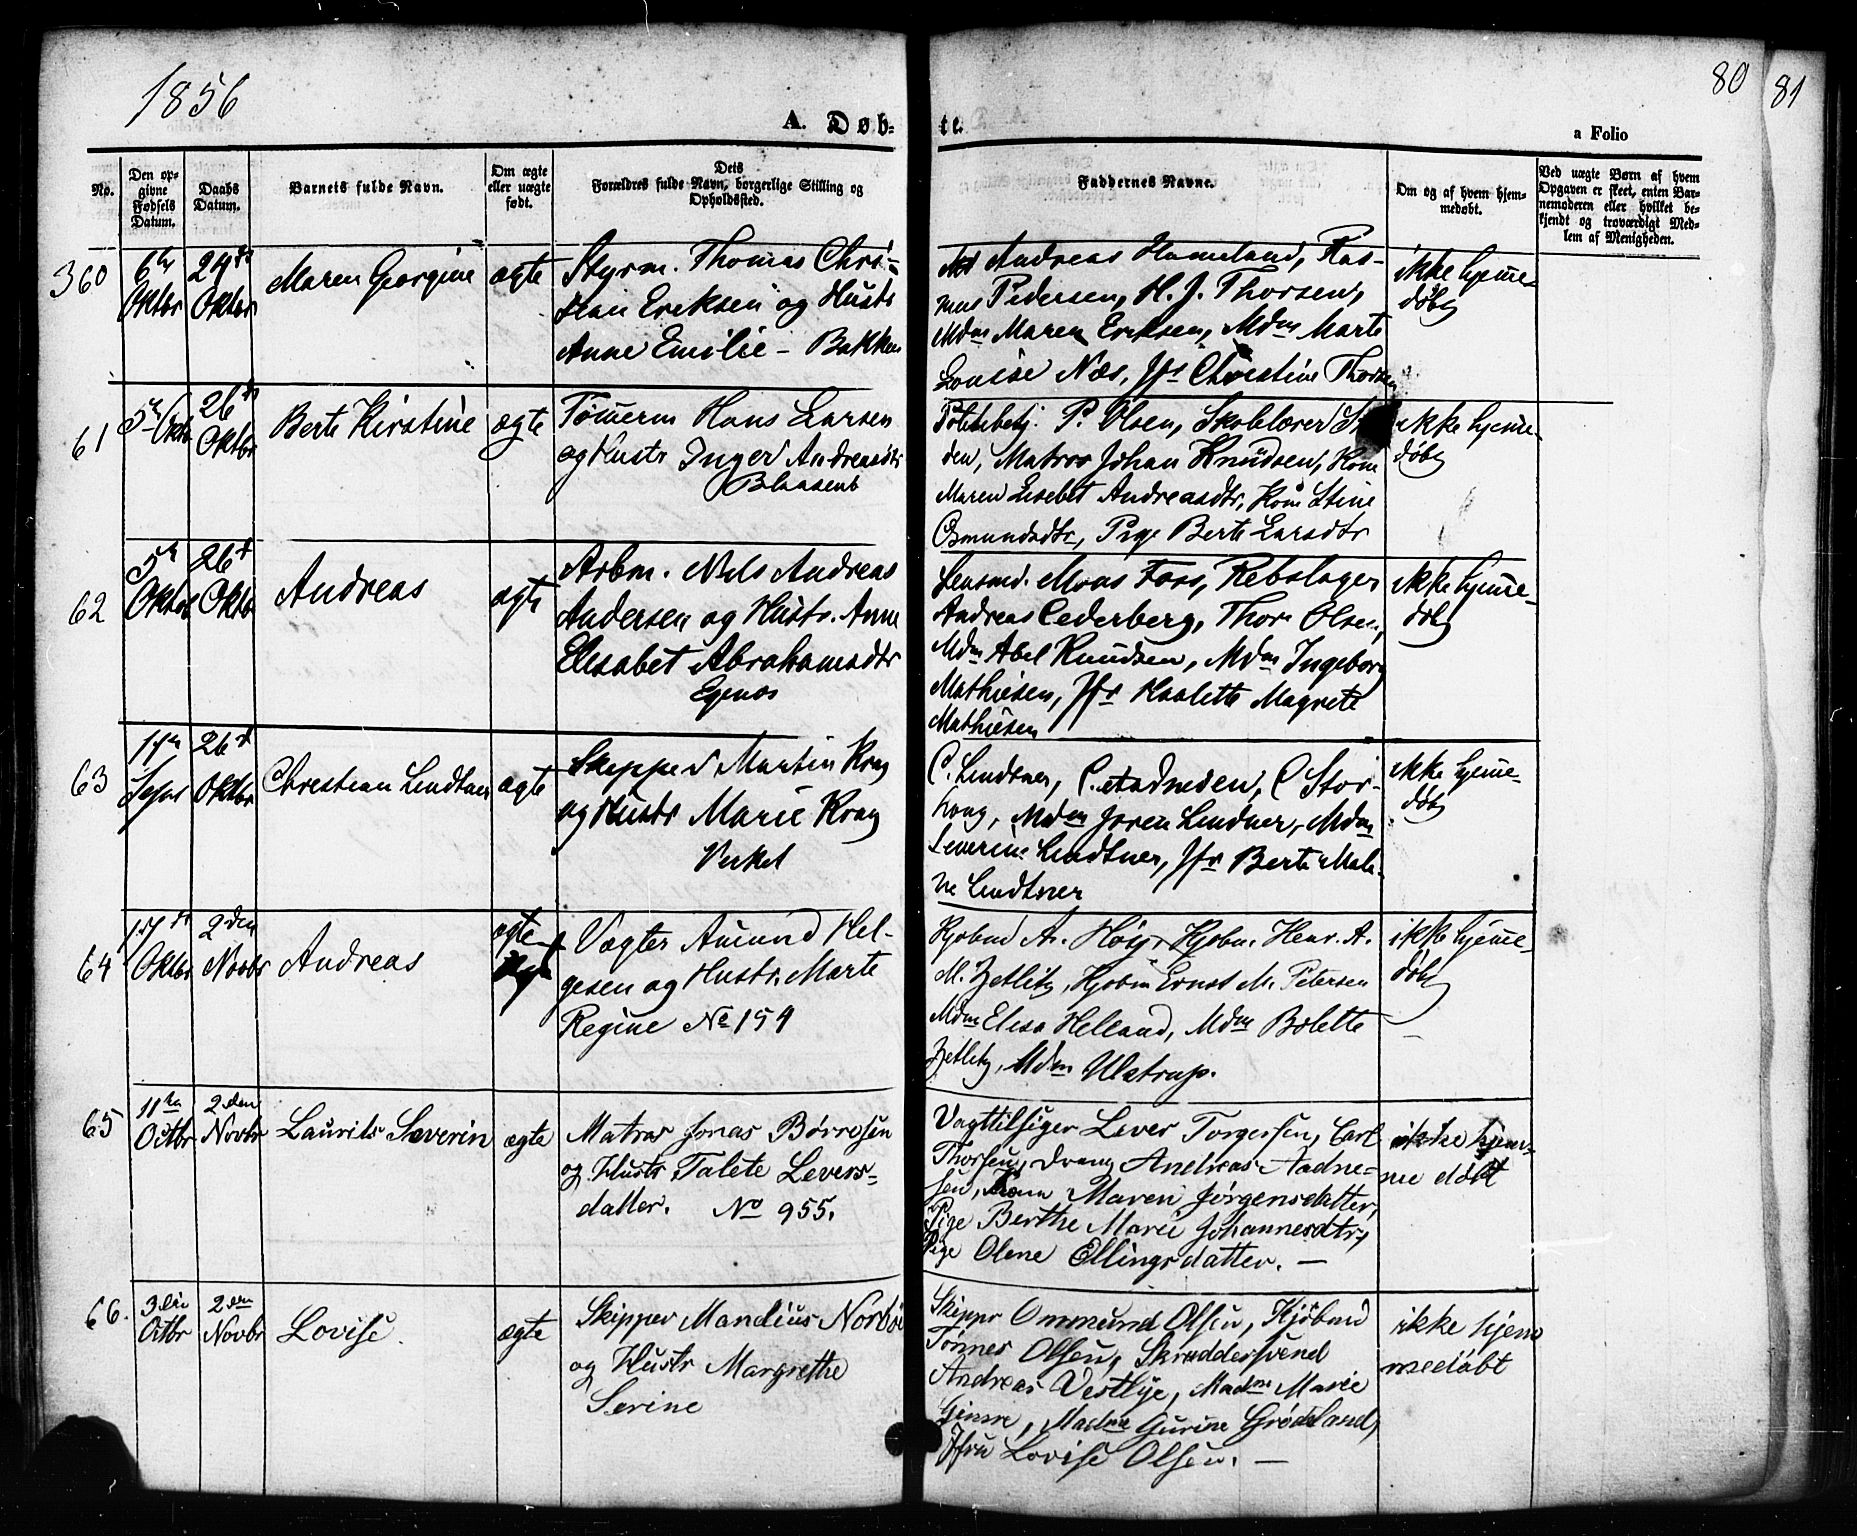 1856
80
81
A. Døb-
te.
a Folio
No.
Den op-
givne
Fødsels
Datum.
Daabs
Datum.
Barnets fulde Navn.
Om ægte
eller uægte
født.
Dets
Forældres fulde Navn, borgerlige Stilling og
Opholdssted.
Faddernes Navne.
Om og af hvem hjem-
medøbt.
Ved uægte Børn af hvem
Opgaven er skeet, enten Bar-
nemoderen eller hvilket be-
kjendt og troværdigt Med-
lem af Menigheden.
360
6te
Oktbr
24de
Oktbr
Maren Georgine
ægte
Styrm. Thomas Chri-
stian Eriksen og Hustr
Anne Emilie - Bakken
Andreas Hameland, Ras-
mus Pedersen, H. J. Thorsen,
Mdm Maren Eriksen, Mdm Marte
Louise Næs, Jfr Christine Thorsen
ikke hjemme-
døbt
61
5te Oktbr
26de
Oktbr
Berte Kirstine
ægte
Tømmerm Hans Larsen
og Hustr Inger Andreasdtr
Blaasenb
Politibetj. P. Olsen, Skolelærer
den, Matros Johan Knudsen, Kone
Maren Lisebet Andreasdtr, Kone Stine
Osmundsdtr, Pige Berte Larsdtr
ikke hjemme-
døbt
62
5te
Oktbr
26de
Oktbr
Andreas
ægte
Arbm. Nels Andreas
Andersen og Hustr. Anne
Elisabet Abrahamsdtr
Egenæs
Lensmd. Mons Foss, Rebslager
Andreas Cederberg, Thor Olsen,
Mdm Abel Knudsen, Mdm Ingeborg
Mathiesen, Jfr Haalette Magrete
Mathiesen
ikke hjemme-
døbt
63
17de
Septbr
26de
Oktbr
Christian Lindtner
ægte
Skipper Martin Krag
og Hustr Marie Krag
Verket
C. Lindtner, C. Aadnesen, C Stor-
houg, Mdm Joren Lindner, Mdm
Severine Lindtner, Jfr Berte Mali-
ne Lindtner
ikke hjemme-
døbt
64
17de
Oktbr
2den
Novbr
Andreas
ægte
Vægter Amund Hel-
gesen og Hustr. Marte
Regine No 154
Kjøbmd A. Høiy, Kjøbm. Henr. A.
M. Zetlitz, Kjøbm Ernst M. Petersen
Mdm Elisa Helland, Mdm Bolette
Zetlitz, Mdm Ulstrup.
ikke hjemme-
døbt
65
11te
Octbr
2den
Novbr
Laurits Severin
ægte
Matros Jonas Børresen
og Hustr Talete Levers-
datter. No 955.
Vagttilsiger Lever Torgersen, Carl
Thorsen, Dreng Andreas Aadne-
sen, Kone Maren Jørgensdatter,
Pige Berthe Marie Johannesdtr,
Pige Olene Ellingsdatter. —
ikke hjem-
me døbt
66.
3die
Octbr
2den
Novbr
Lovise.
ægte
Skipper Mandius Norbøe
og Hustr Margrethe
Serine
Skippr Ommund Olsen, Kjøbmd
Tønnes Olsen, Skræddersvend
Andreas Vestlye, Madme Marie
Gimre, Madme Gurine Grødeland,
Jfru Lovise Olsen. —
ikke hjem
medøbt